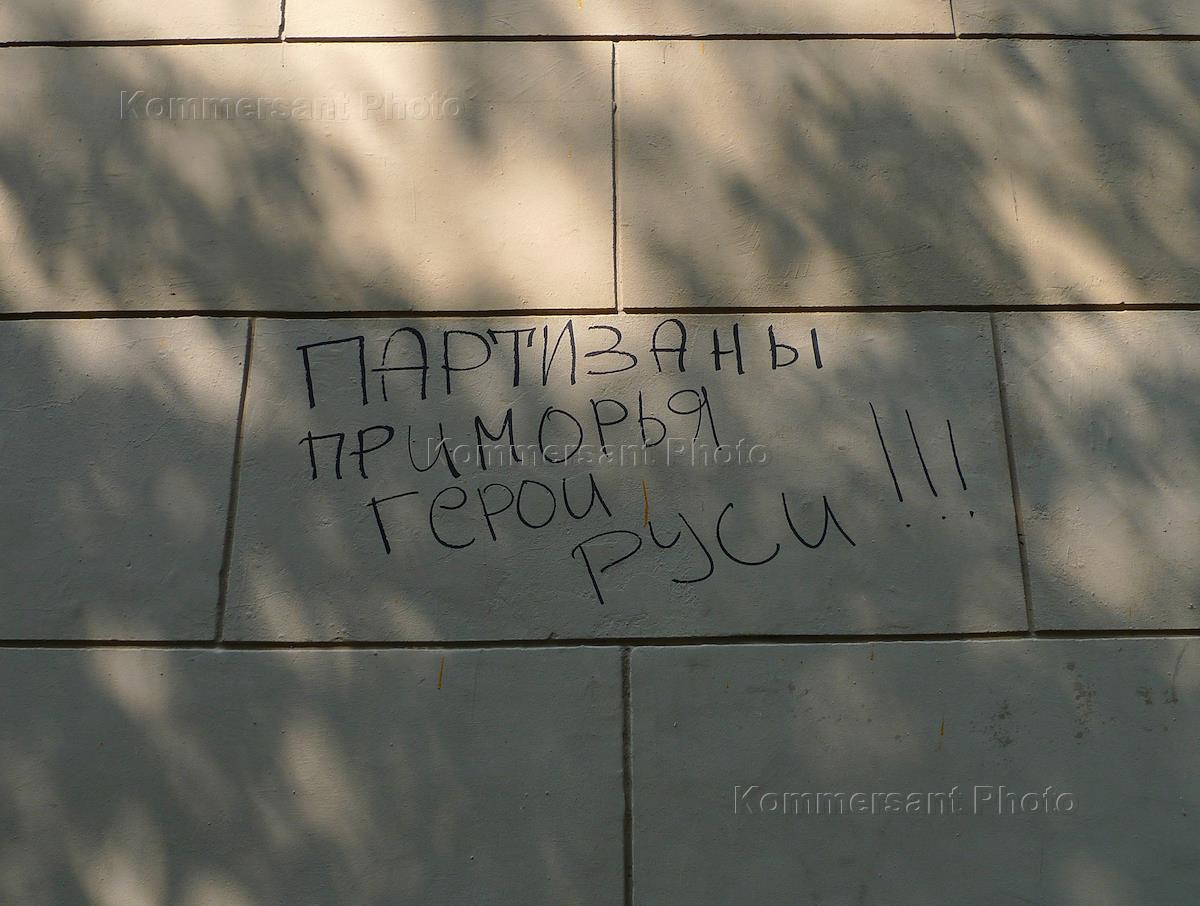 Kommersant Photo
ПАРТИЗАНЫ
ПРИМОРЬЯ
Kommersant Photo
ГЕРОИ
РУСИ !!!
Kommersant Photo